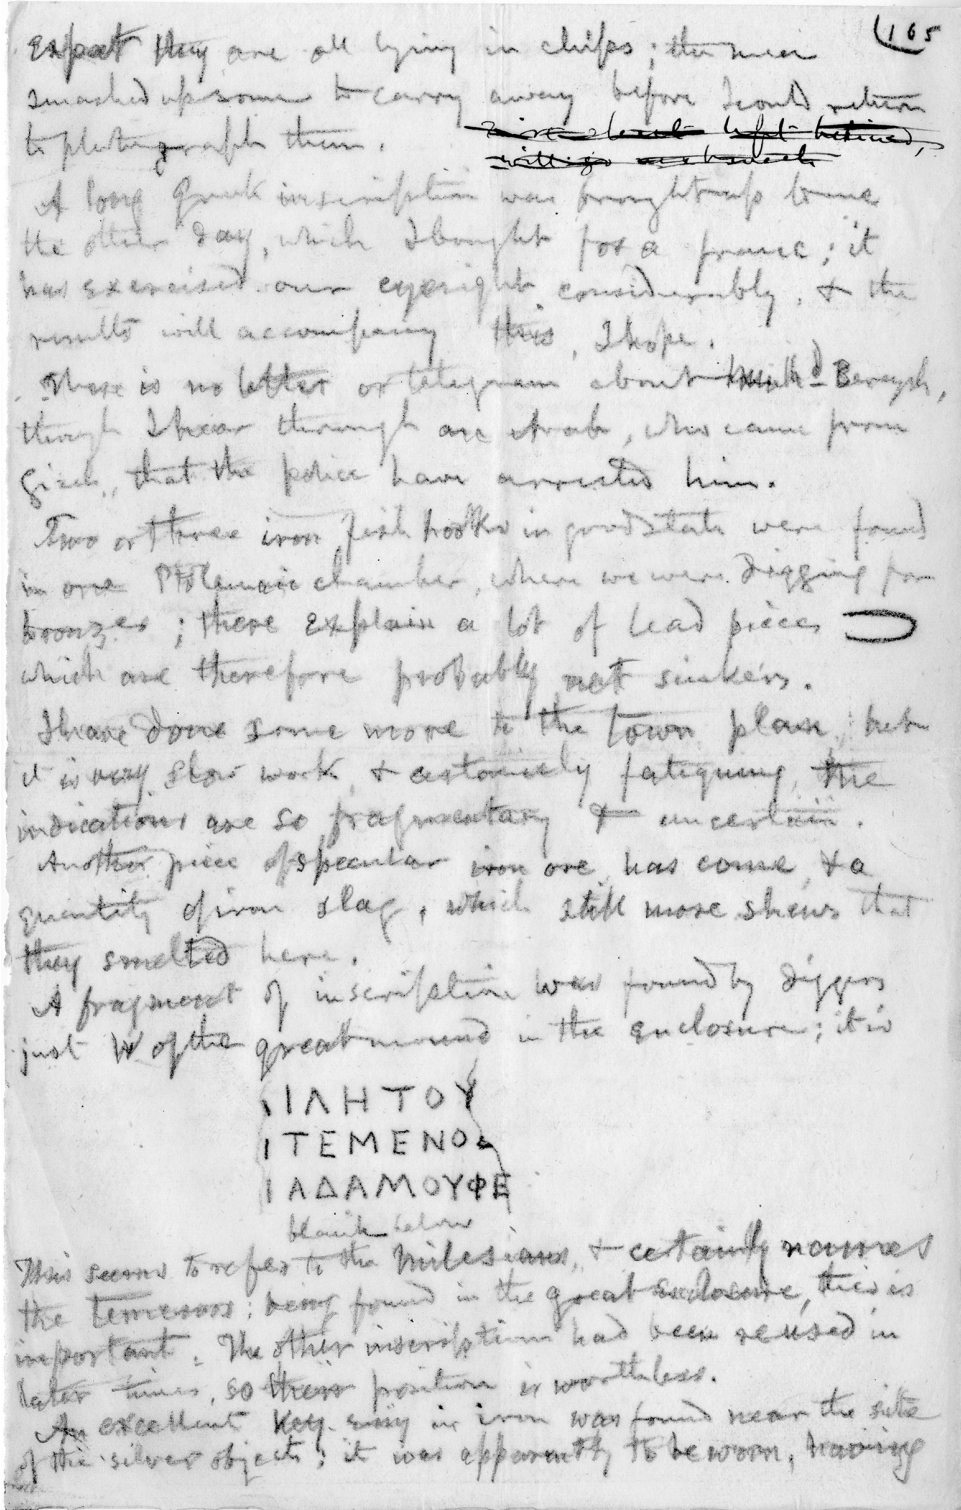 (165
expect they are all lying in chips; the men
smashed up some to carry away before I could return
to photograph them.
A long Greek inscription was brought up to me
the other day, which I bought for a franc; it
has exercised our eyesight considerably, & the
results will accompany this, I hope.
There is no letter or telegram about Muhd Beraysh,
though I hear through an Arab, who came from
Gizeh, that the police have arrested him.
Two or three iron fish hooks in good state were found
in one Ptolemaic chamber, where we were digging for
bronzes; these explain a lot of lead pieces
which are therefore probably net sinkers.
I have done some more to the town plan, but
it is very slow work, & certainly fatiguing, the
indications are so fragmentary & uncertain.
Another piece of specular iron ore has come, & a
quantity of iron slag, which still more shews that
they smelted here.
A fragment of inscription was found by diggers
just W of the great mound in the enclosure; it is
ΙΛΗΤΟΥ
ΙΤΕΜΕΝΟΣ
ΙΑΔΑΜΟΥΦΕ
blank below
This seems to refer to the Milesians, & certainly names
the temenos; being found in the great enclosure, this is
important. The other inscription had been reused in
later times, so their position is worthless.
An excellent key-ring in iron was found near the site
of the silver objects; it was apparently to be worn, having